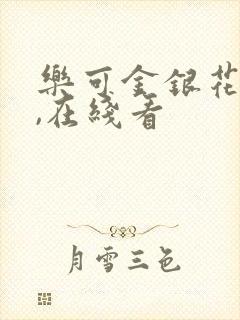 樂可金銀花
,在綫看
月雪三色